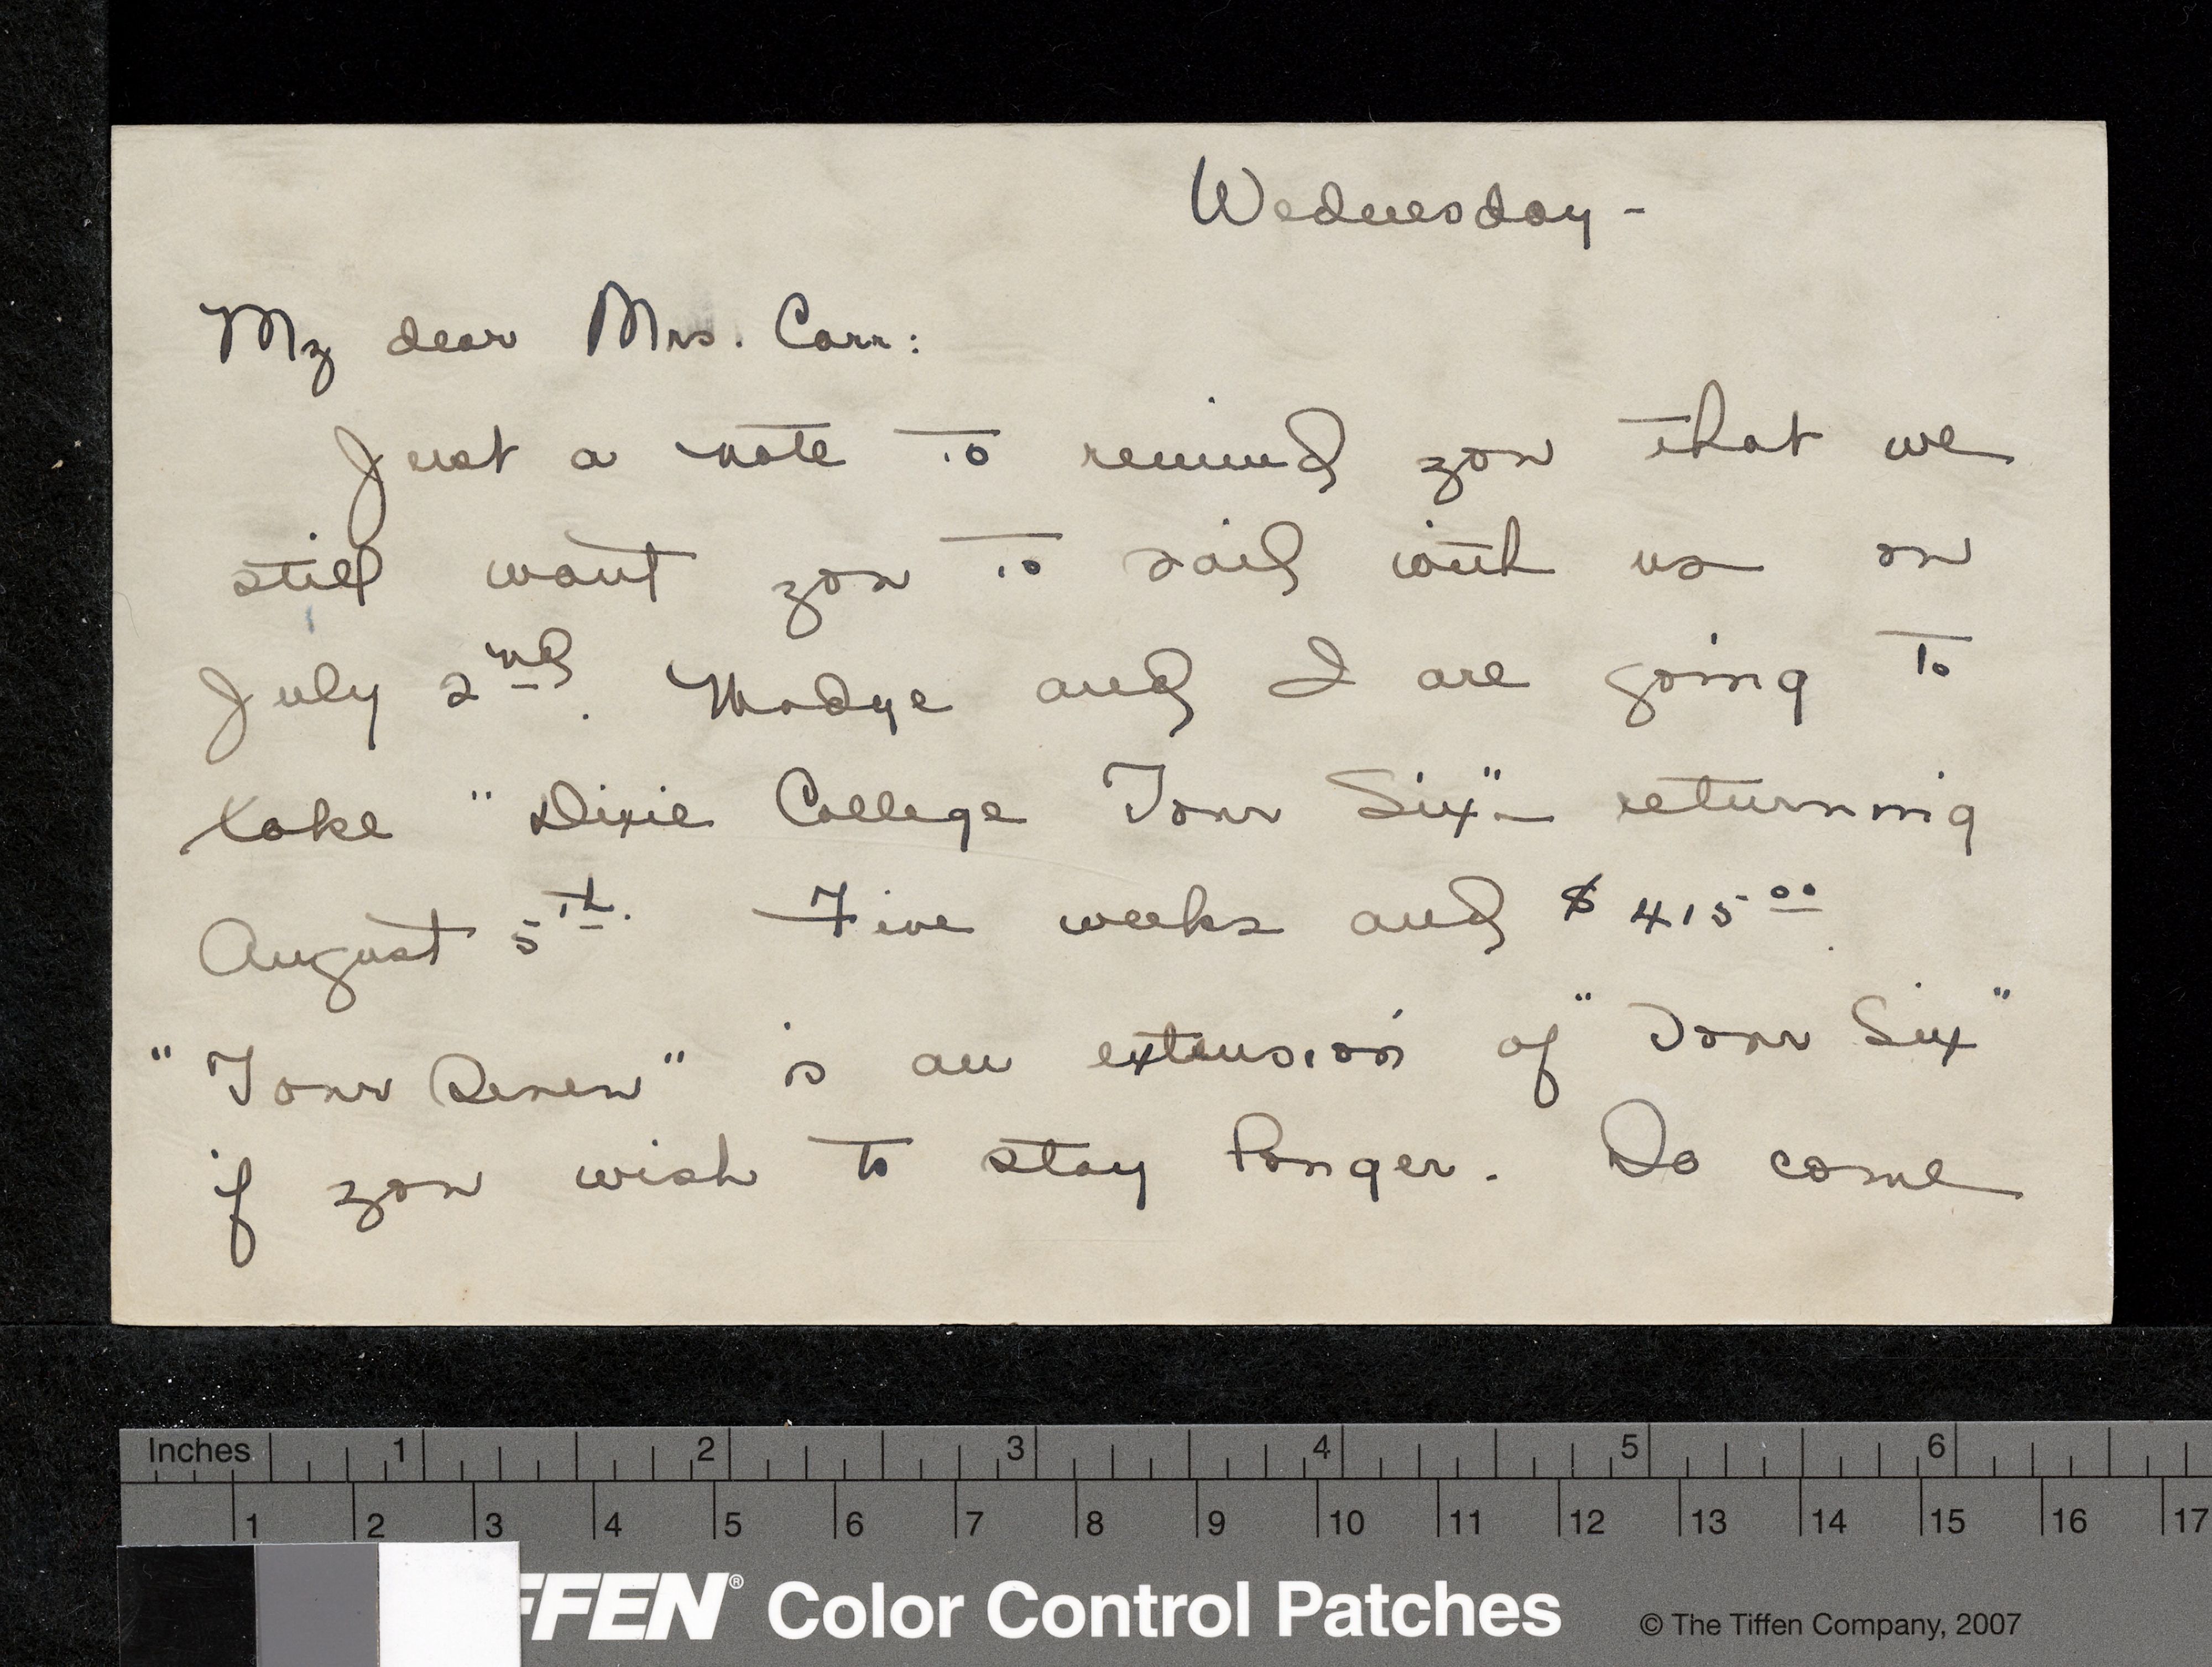 Wednesday -
My dear Mrs. Carr:
Just a note to remind you that we
still want you to sail with us on
July 2nd. Madge and I are going to
take "Dixie College Tour Six" - returning
August 5th. Five weeks and $415.00.
"Tour Seven" is an extension of "Tour Six"
if you wish to stay longer. Do come
Inches 1 2 3 4 5 6
1 2 3 4 5 6 7 8 9 10 11 12 13 14 15 16 17
FFEN® Color Control Patches © The Tiffen Company, 2007